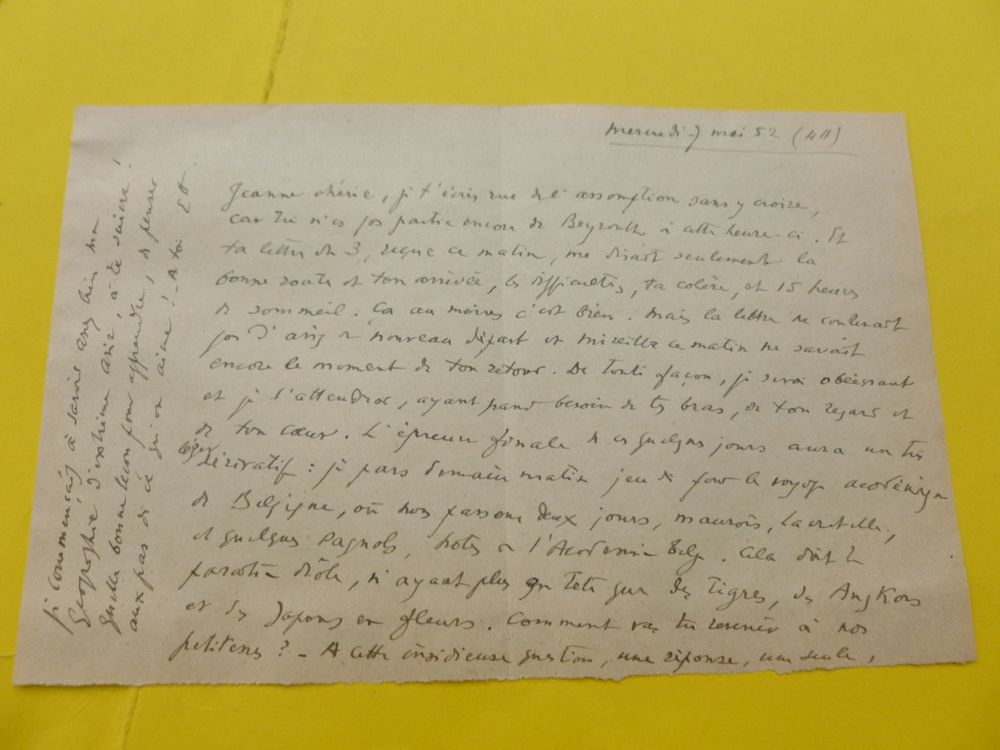 mercredi 7 mai 52 (4h)
Jeanne chérie, je t'écris rue de l'assomption sans y croire,
car tu n'es pas partie encore de Beyrouth à cette heure-ci. Et
ta lettre du 3, reçue ce matin, me disait seulement la
bonne route et ton arrivée, les difficultés, ta colère, et 15 heures
de sommeil. Ca au moins c'est bien. Mais la lettre ne contenait
pas d'avis de nouveau départ et Mireille ce matin ne savait
encore le moment de ton retour. De toute façon, je serai obéissant
et je t'attendrai, ayant grand besoin de tes bras, de ton regard et
de ton cœur. L'épreuve finale de ces quelques jours aura un très
léger dérivatif : je pars demain matin jeudi pour le voyage académique
de Belgique, où nous passons deux jours, Maurois, Lacretelle,
et quelques Pagnols, hôtes de l'Académie belge. Cela doit te
paraître drôle, n'ayant plus en tête que des tigres, des Angkors
et des Japons en fleurs. Comment vas tu revenir à nos
petitesses ? - A cette insidieuse question, une réponse, une seule,
Je commençais à savoir assez bien ma
Géographie d'extrême asie, à te suivre !
Quelle bonne leçon pour apprendre, de penser
aux pas de ce qu'on aime ! A toi